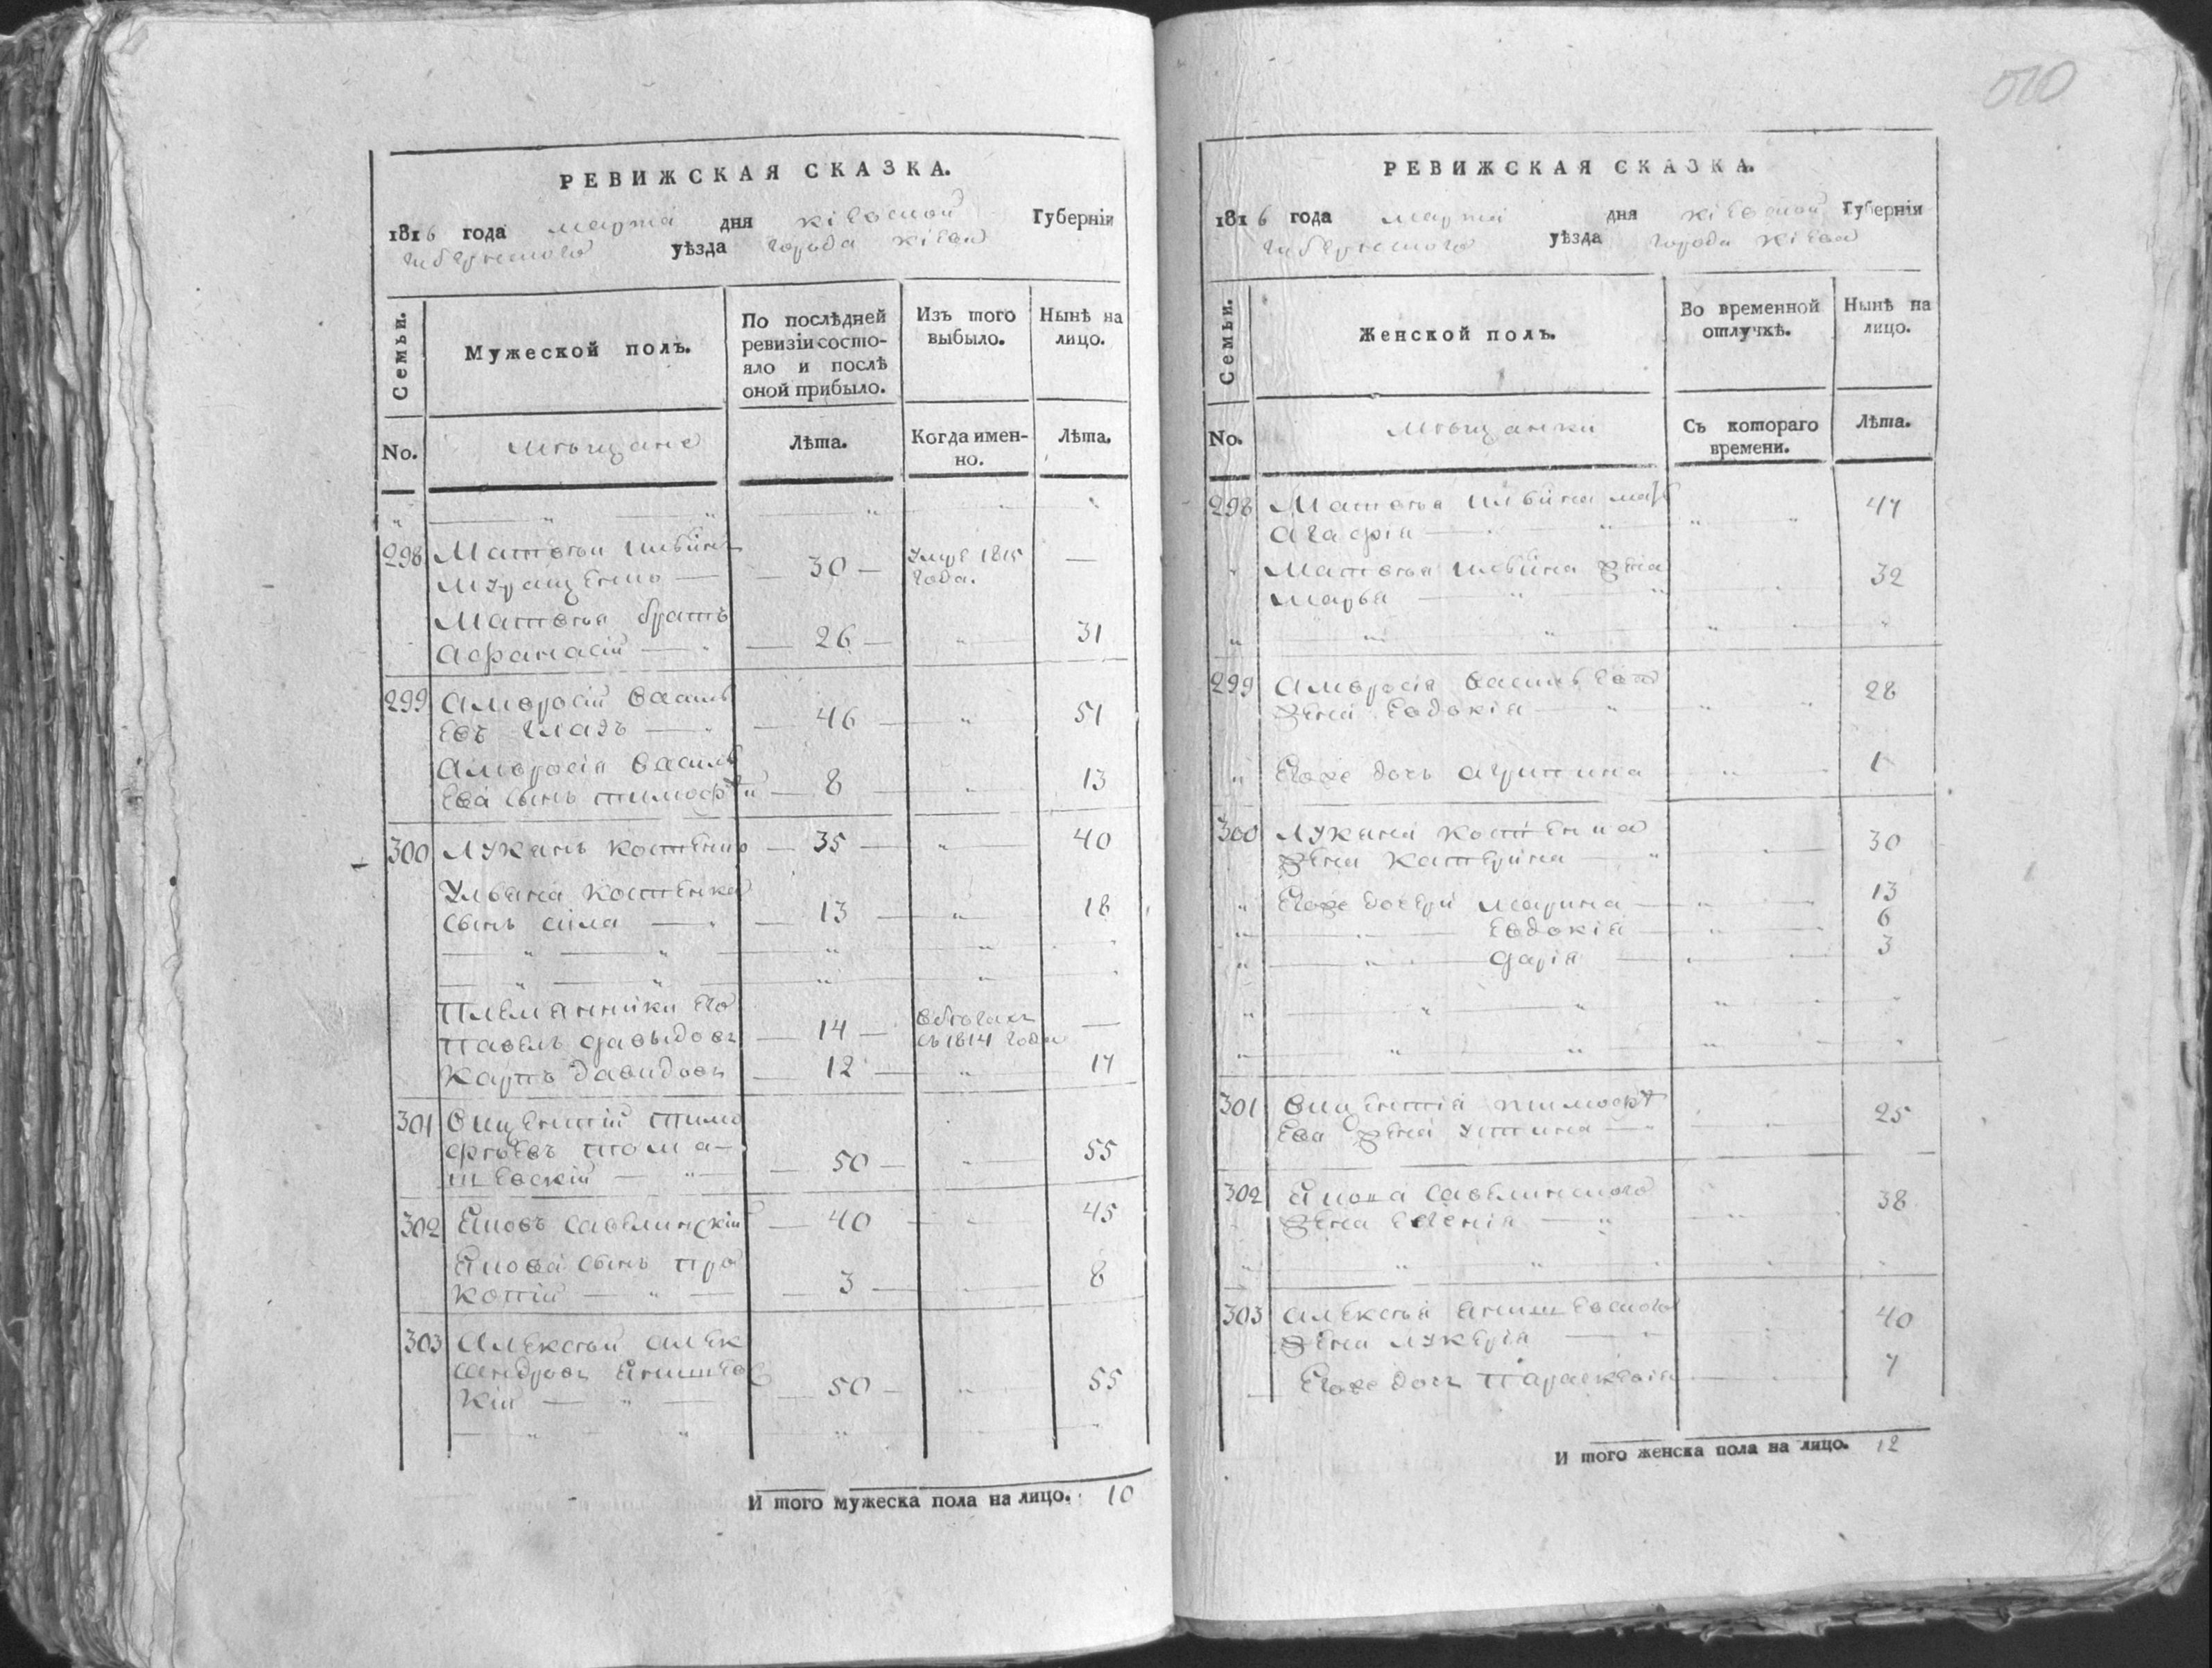 РЕВИЖСКАЯ СКАЗКА.
1816 года марта дня кіевской Губерніи
губернского уѣзда города кіева
Семьи. Мужеской полъ. По послѣдней ревизіи состояло и послѣ оной прибыло. Изъ того выбыло. Нынѣ на лицо.
No. мѣщане Лѣта. Когда именно. Лѣта.
298 Матвѣй ильинъ
муращенко — 30 — умре 1815 года. —
Матвѣя братъ
афанасій — 26 — 31
299 амвросій василь
евъ глазъ — 46 — 51
амвросія василь
ева сынъ тимофѣй — 8 13
300 лукянъ костенко — 35 — 40
ульяна костенка
сынъ сила — 13 — 18
племянники его
павелъ давыдовъ — 14 — въ бѣгахъ съ 1814 года —
карпъ давидовъ — 12 — 17
301 викентій тимо
фѣевъ тома-
шевскій — 50 — 55
302 яковъ савелинскій — 40 45
якова сынъ про
копій — 3 — 8
303 алексѣй алек
сандровъ янишевс
кій — 50 — 55
И того мужеска пола на лицо. 10
РЕВИЖСКАЯ СКАЗКА.
1816 года марта дня кіевской Губерніи
губернского уѣзда города кіева
Семьи. Женской полъ. Во временной отлучкѣ. Нынѣ на лицо.
No. мѣщанки Съ котораго времени. Лѣта.
298 Матвѣя ильина мать
агафія — 47
Матвѣя ильина жена
марья — 32
299 амвросія васильева
жена евдокія — 28
Егоже дочь агрипина 1
300 лукяна костенка
жена катерина — 30
Егоже дочери марина — 13
Евдокія — 6
дарія — 3
301 викентія тимофѣ
ева жена устина — 25
302 якова савелинского
жена евгенія — 38
303 алексѣя янишевского
жена лукерія — 40
Егоже дочь параскевія 7
И того женска пола на лицо. 12